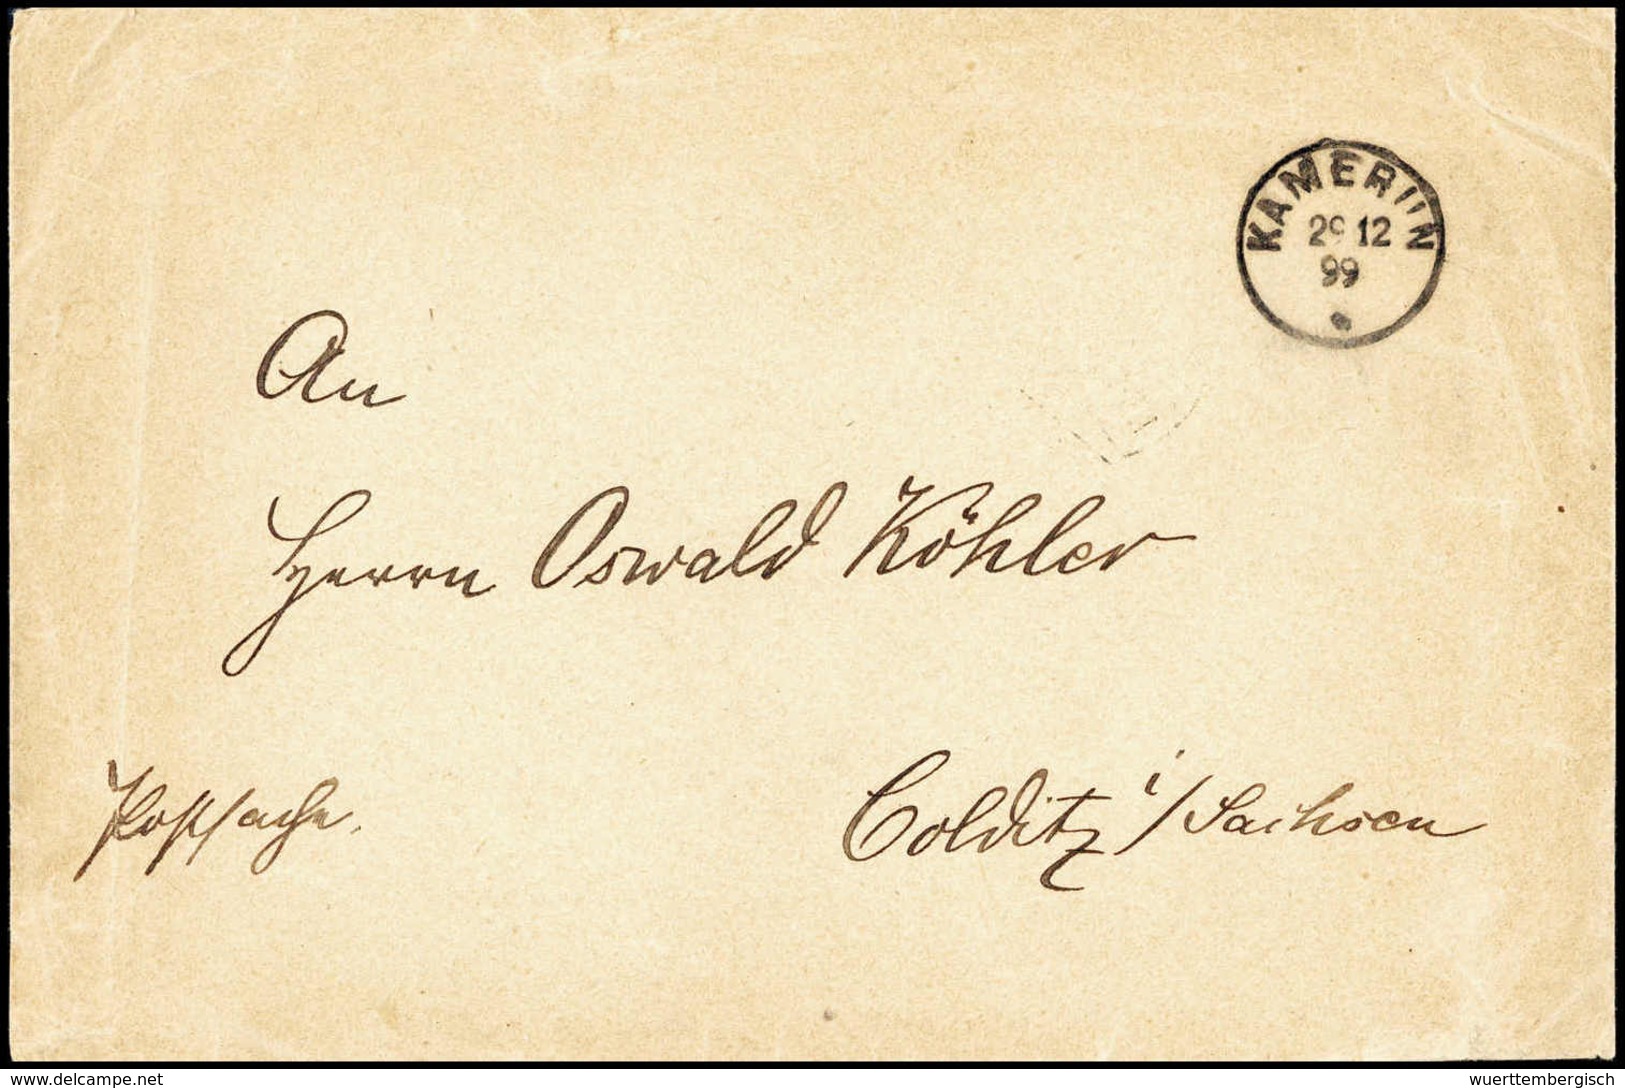 KAMERUN
29 12
99
An
Herrn Oswald Köhler
Postsache.
Colditz i/Sachsen
www.delcampe.net
wuerttembergisch